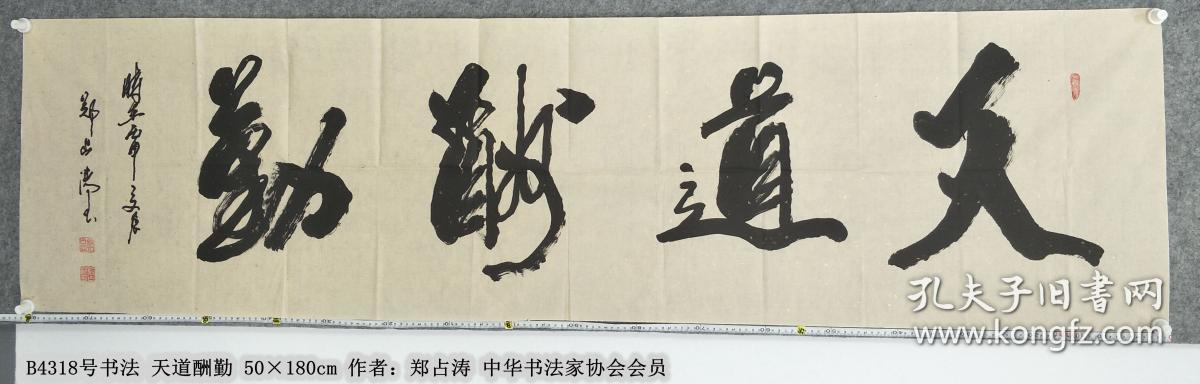 天道酬勤
時在丙申之夏月
郑占涛书
孔夫子旧書网
www.kongfz.com
B4318号书法 天道酬勤 50×180cm 作者：郑占涛 中华书法家协会会员